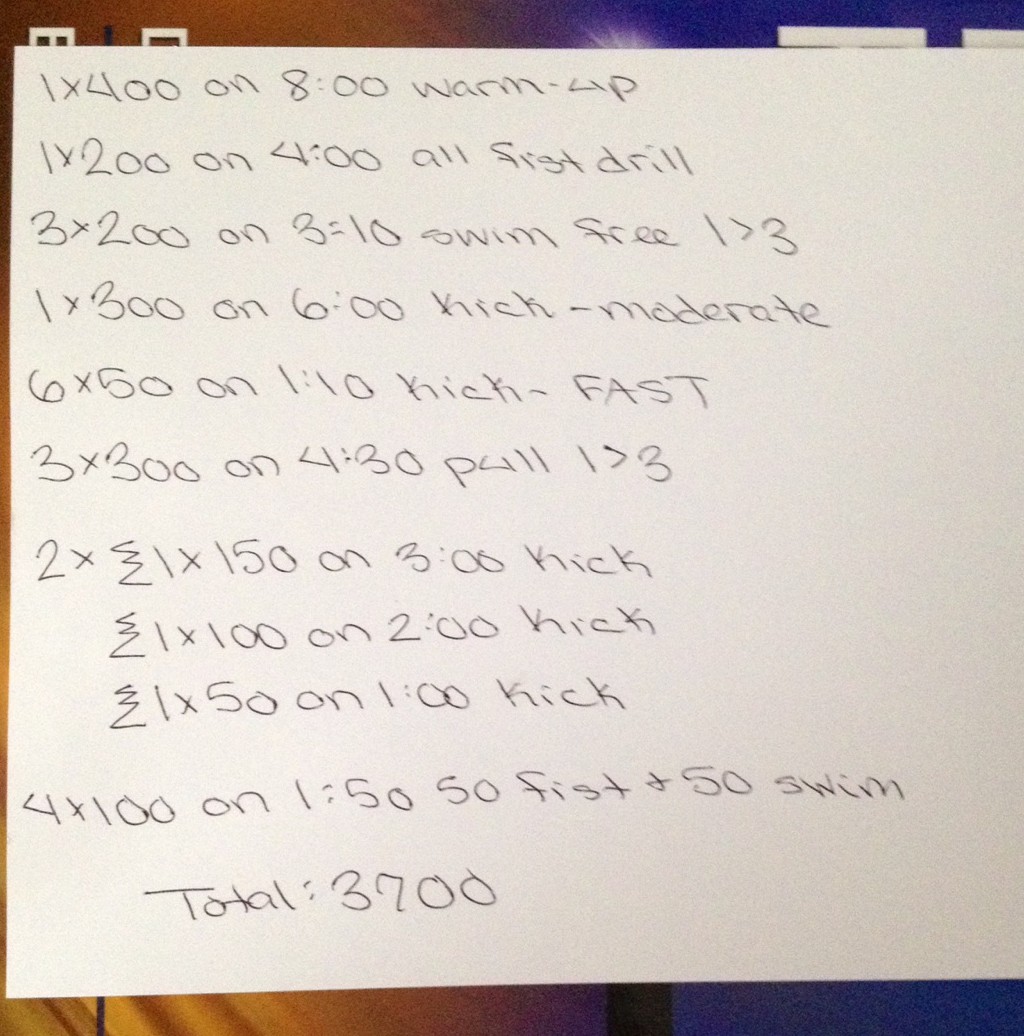 1x400 on 8:00 warm-up
1x200 on 4:00 all fist drill
3x200 on 3:10 swim free 1>3
1x300 on 6:00 kick - moderate
6x50 on 1:10 kick - FAST
3x300 on 4:30 pull 1>3
2x {1x150 on 3:00 kick
{1x100 on 2:00 kick
{1x50 on 1:00 kick
4x100 on 1:50 50 fist + 50 swim
Total: 3700